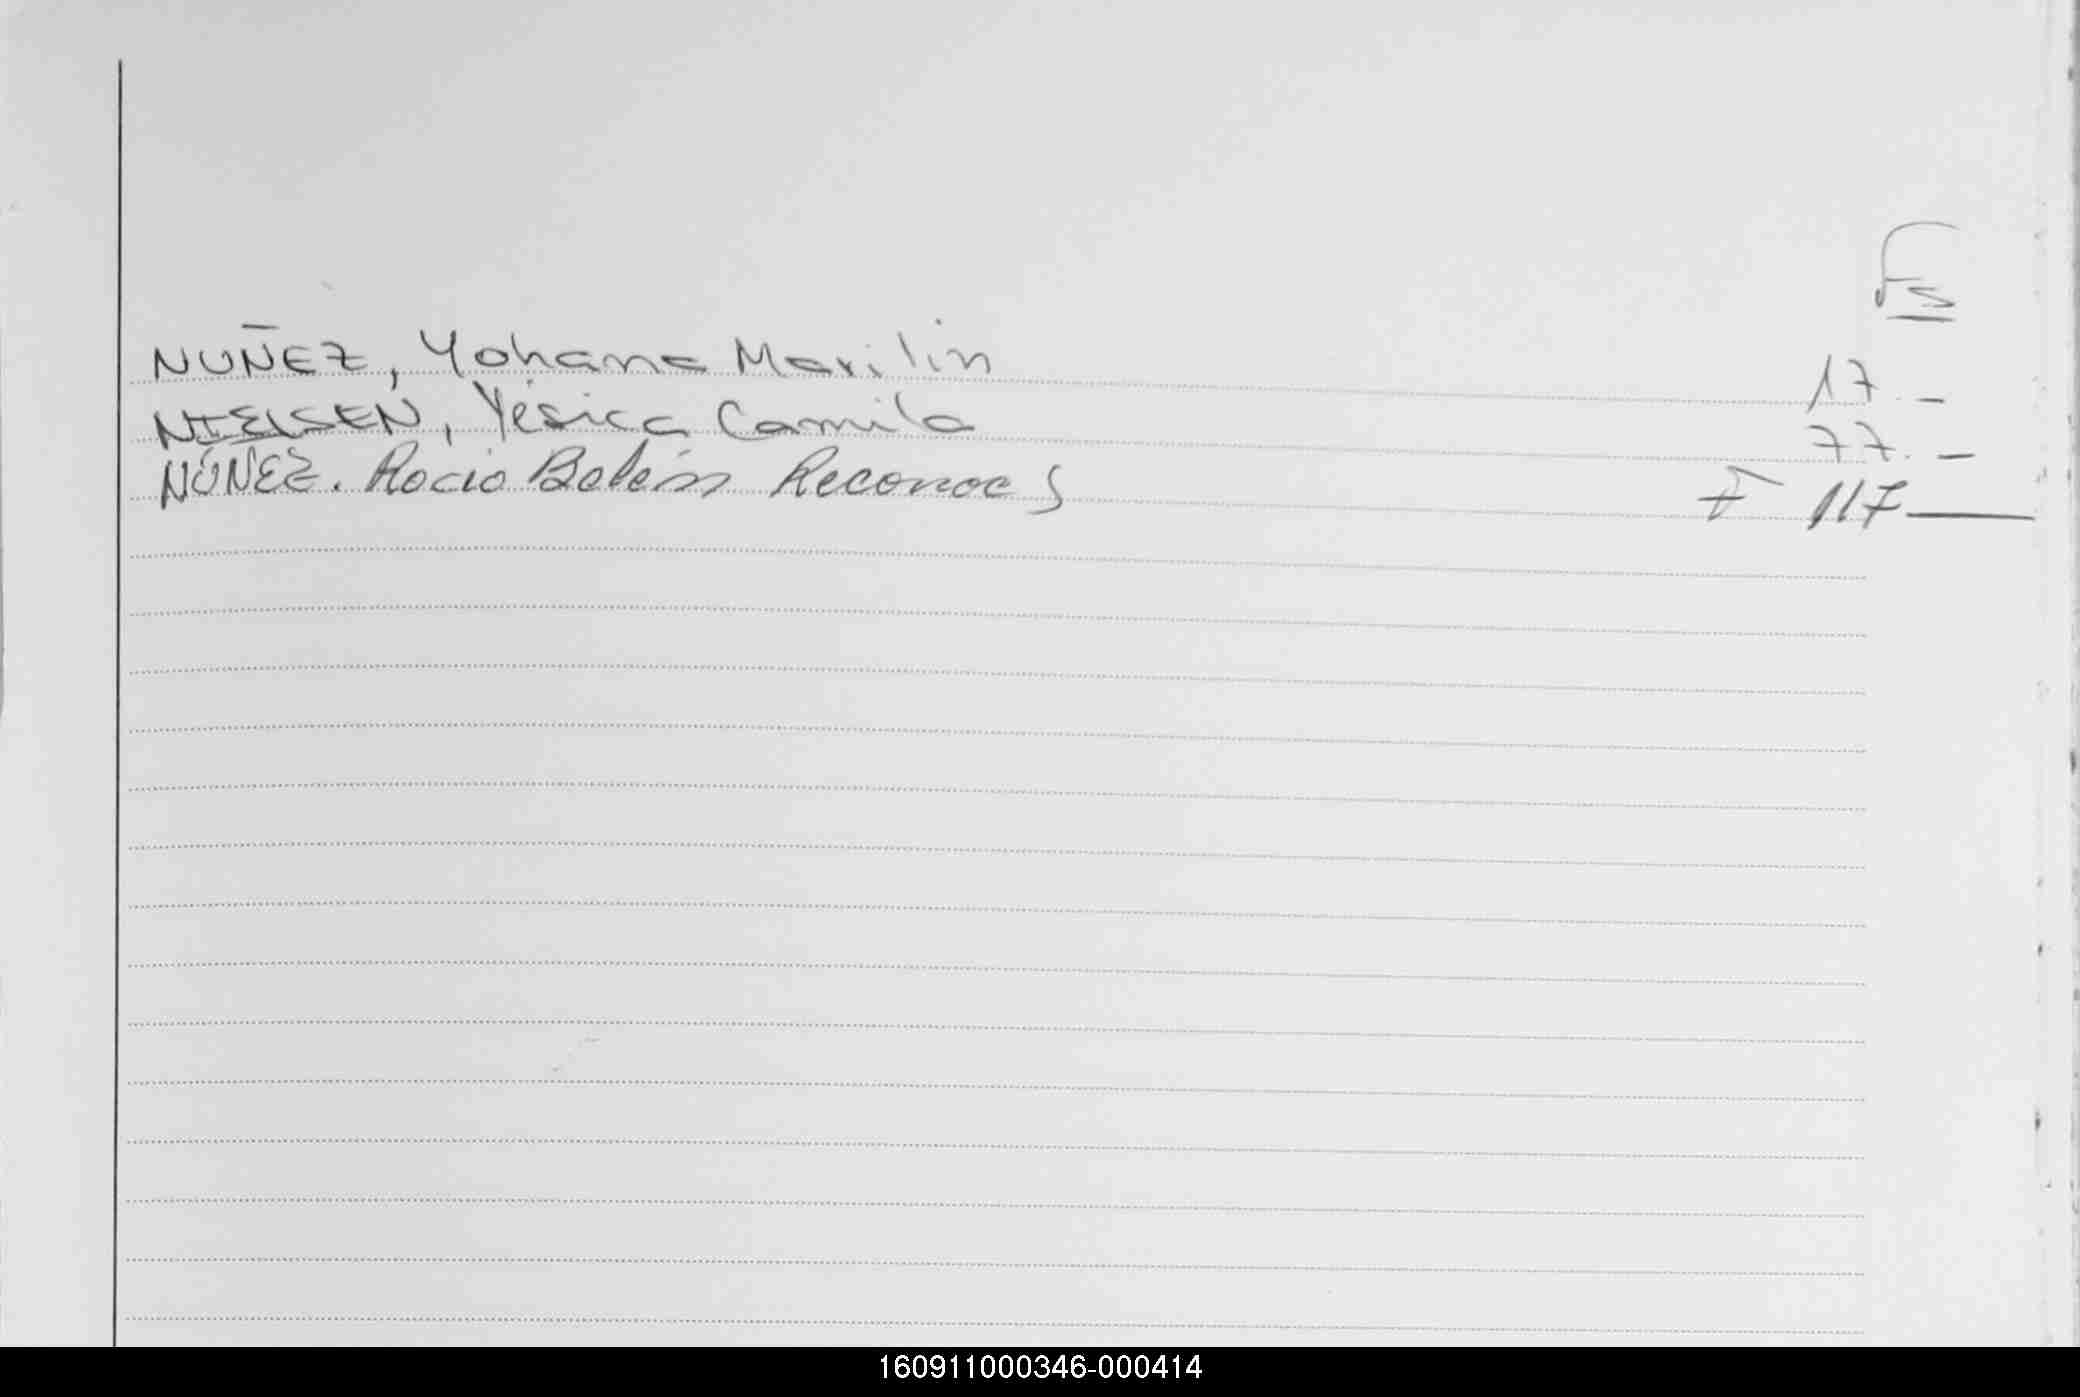 Fs
NUÑEZ, Yohana Marilin 17. —
NIELSEN, Yésica Camila 77. —
NÚÑEZ. Rocio Belén Reconoc 117 —
160911000346-000414